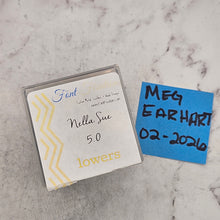 Font
Nella Sue
5.0
lowers
MEG
EARHART
02-2026